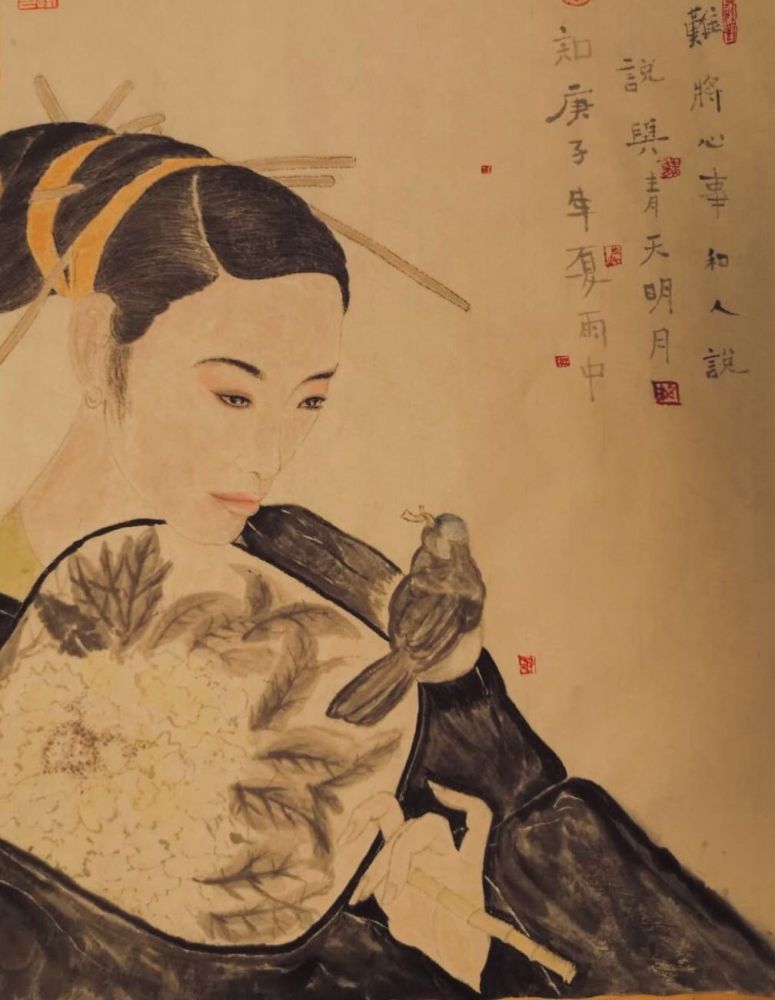 難將心事和人說
說與青天明月
庚子年夏雨中